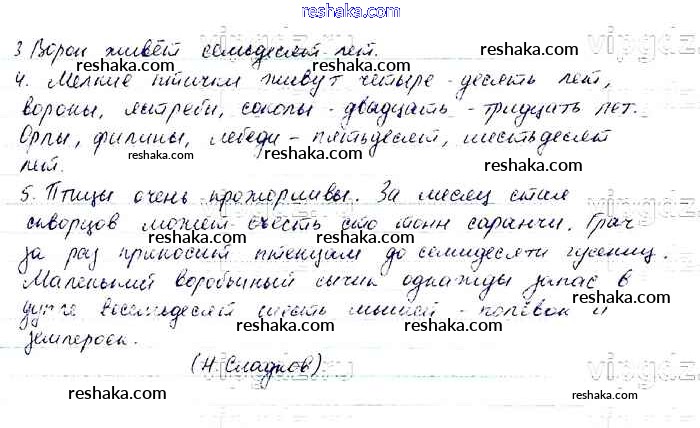 reshaka.com
3 Ворон живёт семьдесят лет.
4. Мелкие птички живут четыре - десять лет,
вороны, ястребы, соколы - двадцать - тридцать лет.
Орлы, филины, лебеди - пятьдесят, шестьдесят
лет.
5. Птицы очень прожорливы. За месяц стая
скворцов может съесть сто тонн саранчи. Грач
за раз приносит птенцам до семидесяти гусениц.
Маленький воробьиный сычик однажды запас в
дупле восемьдесят шесть мышей - полёвок и
землероек.
(Н. Сладков)
reshaka.com
reshaka.com
reshaka.com
reshaka.com
reshaka.com
reshaka.com
reshaka.com
reshaka.com
reshaka.com
reshaka.com
reshaka.com
reshaka.com
reshaka.com
reshaka.com